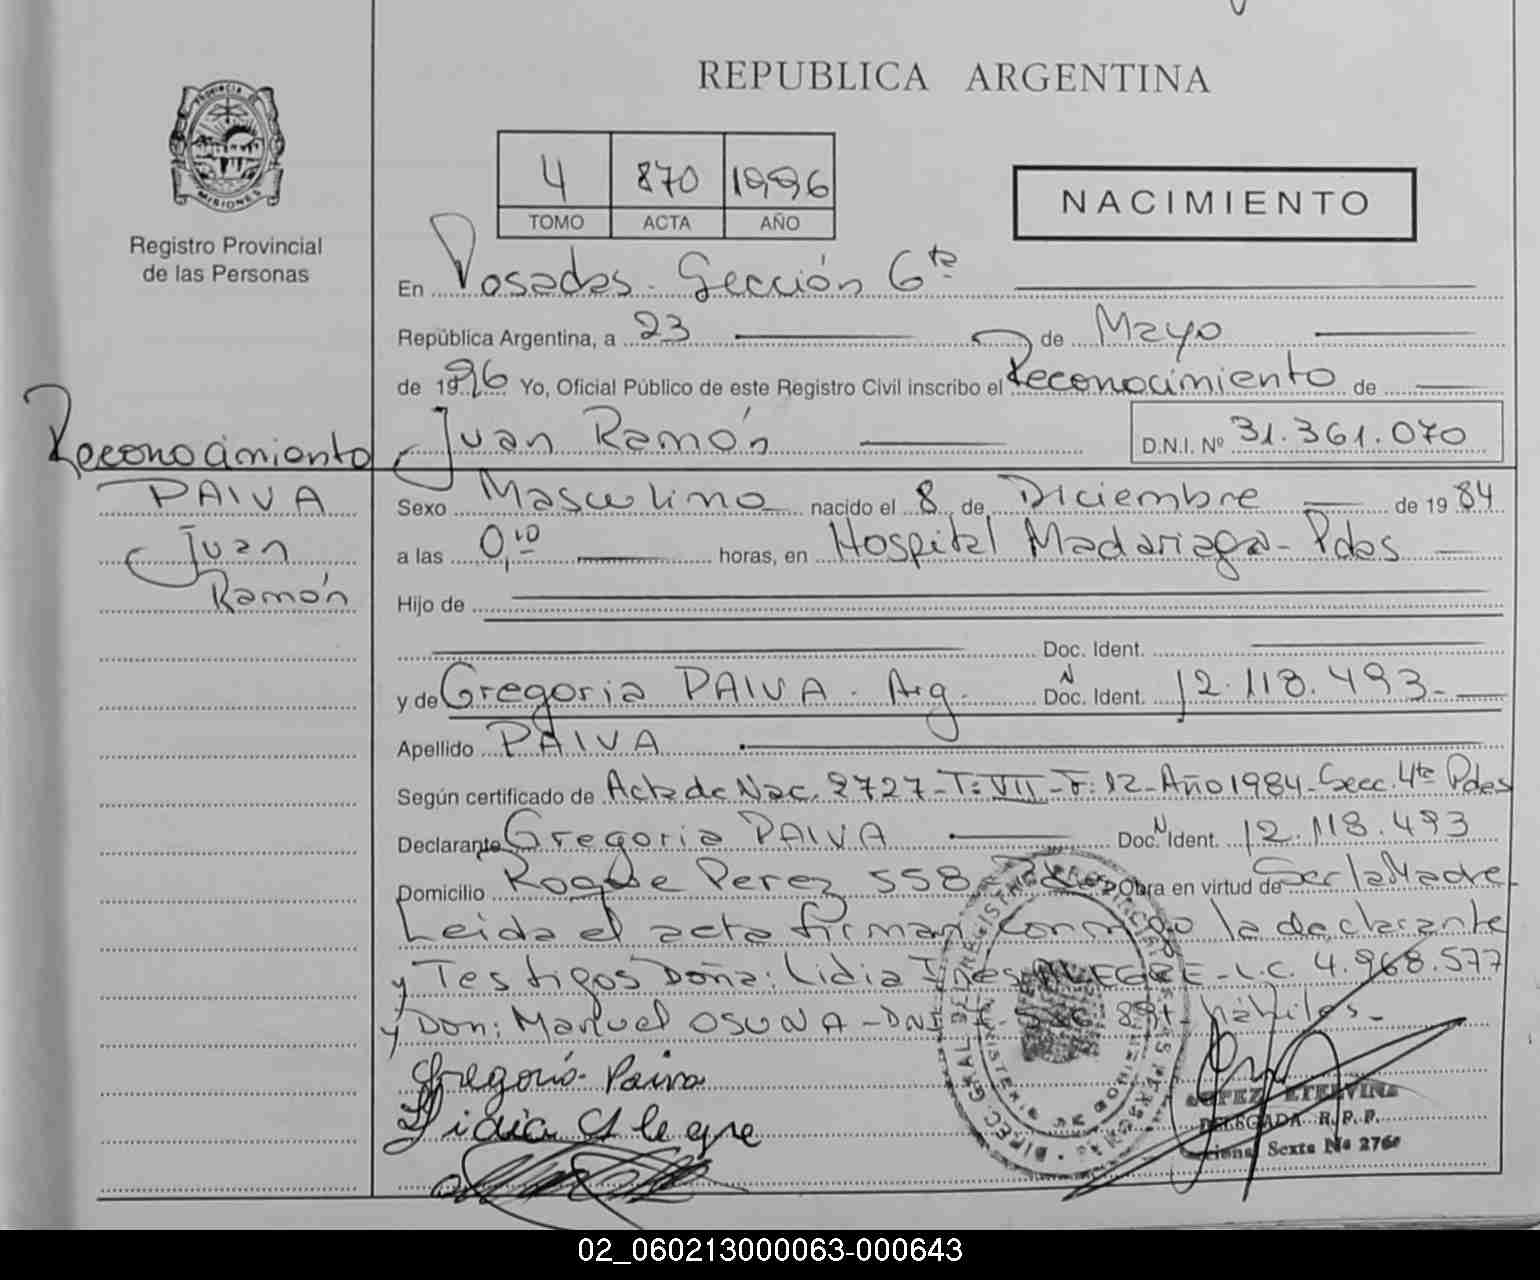 REPUBLICA ARGENTINA
PROVINCIA DE
MISIONES
Registro Provincial
de las Personas
4 870 1996
TOMO ACTA AÑO
NACIMIENTO
En Posadas. Sección 6ta
República Argentina, a 23 de Mayo
de 1996 Yo, Oficial Público de este Registro Civil inscribo el Reconocimiento de
Juan Ramón D.N.I. Nº 31.361.070
Reconocimiento
PAIVA
Juan
Ramón
Sexo Masculino nacido el 8 de Diciembre de 1984
a las 0,10 horas, en Hospital Madariaga - Pdas
Hijo de
Doc. Ident.
y de Gregoria PAIVA. Arg. N Doc. Ident. 12.118.493-
Apellido PAIVA
Según certificado de Acta de Nac. 2727-T:VII-F:12-Año 1984-Secc. 4ta Pdas
Declarante Gregoria PAIVA Doc. N Ident. 12.118.493
Domicilio Roque Perez 558 Obra en virtud de Ser la Madre
Leida el acta firman conmigo la declarante
y Testigos Doña: Lidia Ines ALEGRE-L.C. 4.968.577
y Don: Manuel OSUNA-DNI hábiles.-
Gregoria Paiva
Lidia Alegre
LOPEZ ETELVINA
DELEGADA R. P. P.
Sexta Nº 2760
02_060213000063-000643